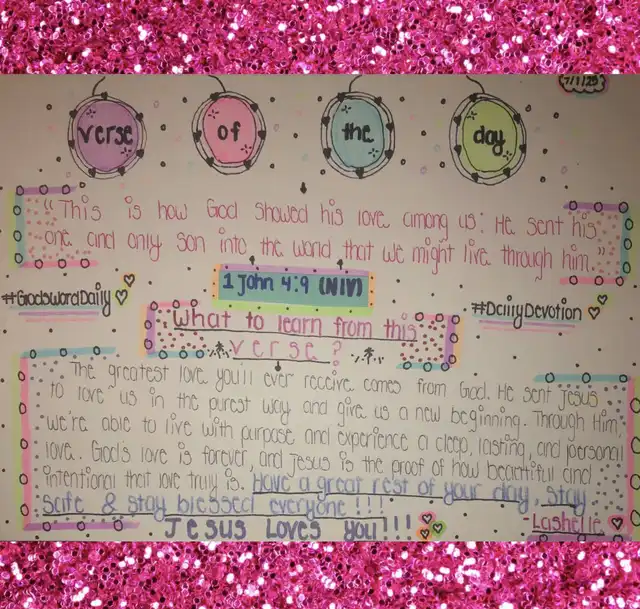 7/1/25
verse of the day
"This is how God showed his love among us: He sent his
one and only son into the world that we might live through him."
1 John 4:9 (NIV)
#GodsWordDaily
#DailyDevotion
What to learn from this
verse?
The greatest love you'll ever receive comes from God. He sent Jesus
to love us in the purest way and give us a new beginning. Through Him
we're able to live with purpose and experience a deep, lasting, and personal
love. God's love is forever, and Jesus is the proof of how beautiful and
intentional that love truly is. Have a great rest of your day, stay
safe & stay blessed everyone!!!
Jesus Loves you!!!
-Lashelle